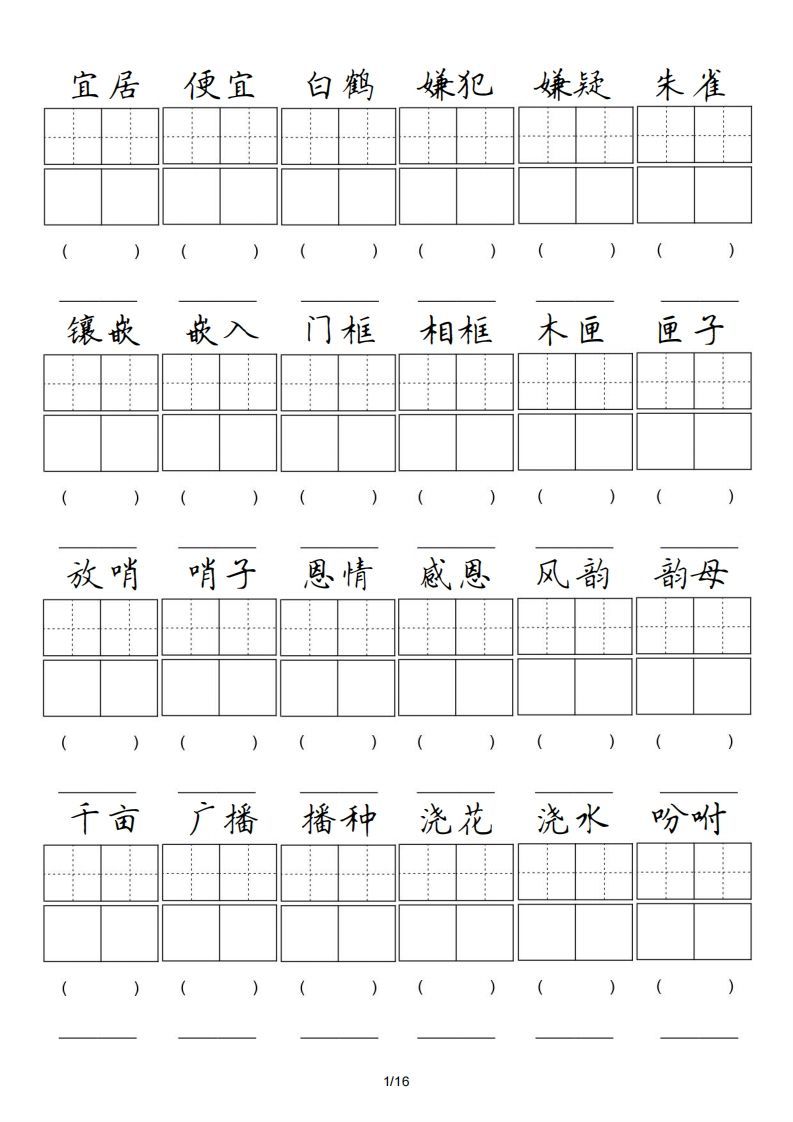 宜居 便宜 白鹤 嫌犯 嫌疑 朱雀
( ) ( ) ( ) ( ) ( ) ( )
镶嵌 嵌入 门框 相框 木匣 匣子
( ) ( ) ( ) ( ) ( ) ( )
放哨 哨子 恩情 感恩 风韵 韵母
( ) ( ) ( ) ( ) ( ) ( )
千亩 广播 播种 浇花 浇水 吩咐
( ) ( ) ( ) ( ) ( ) ( )
1/16